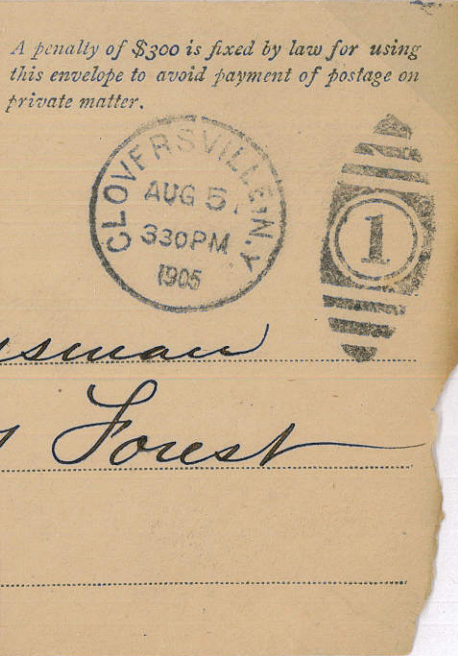 A penalty of $300 is fixed by law for using
this envelope to avoid payment of postage on
private matter.
CLOVERSVILLE, N.Y.
AUG 5
330PM
1905
1
Forest